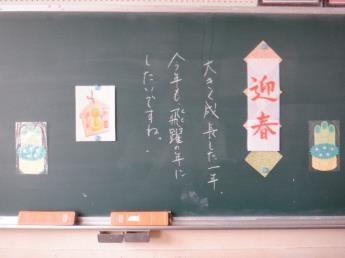 迎春
大きく成長した一年。
今年も、飛躍の年に
したいですね。